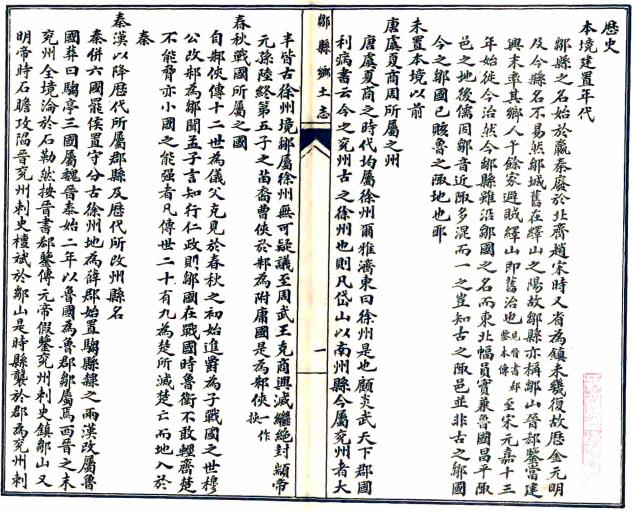 歷史
本境建置年代
鄒縣之名始於嬴秦廢於北齊趙宋時又省為鎮未幾復故歷金元明
及今縣名不易然鄒城舊在繹山之陽故鄒縣亦稱鄒山晉郗鑒當建
興末率其鄉人千餘家避賊繹山即舊治也見晉書郗鑒本傳至宋元嘉十三
年始徙今治然今鄒縣雖沿鄒國之名而東北幅員實兼魯國昌平陬
邑之地後儒因鄒音近陬多混而一之豈知古之陬邑並非古之鄒國
今之鄒國已賅魯之陬地也耶
未置本境以前
唐虞夏商周所屬之州
唐虞夏商之時代均屬徐州爾雅濟東曰徐州是也顧炎武天下郡國
利病書云今之兗州古之徐州也則凡岱山以南州縣今屬兗州者大
鄒縣鄉土志
一
半皆古徐州境鄒屬徐州無可疑議至周武王克商興滅繼絕封顓帝
元孫陸終第五子之苗裔曹俠於邾為附庸國是為邾俠一作挾
春秋戰國所屬之國
自邾俠傳十二世為儀父克見於春秋之初始進爵為子戰國之世穆
公改邾為鄒聞孟子言知行仁政則鄒國在戰國時魯衛不敢輕齊楚
不能脅亦小國之能強者凡傳世二十有九為楚所滅楚亡而地入於
秦
秦漢以降歷代所屬郡縣及歷代所改州縣名
秦併六國罷侯置守分古徐州地為薛郡始置騶縣隸之兩漢改屬魯
國莽曰騶亭三國屬魏晉泰始二年以魯國為魯郡鄒屬焉西晉之末
兗州全境淪於石勒然按晉書郗鑒傳元帝假鑒兗州刺史鎮鄒山又
明帝時石瞻攻陷晉兗州刺史檀斌於鄒山是時縣襲於郡為兗州刺